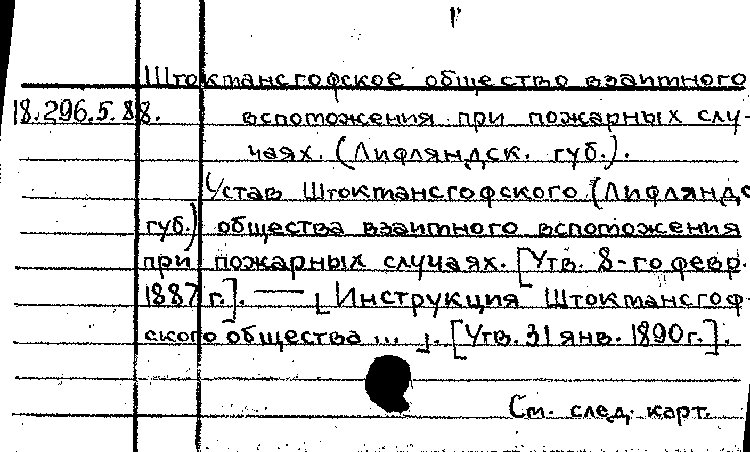 Штокмансгофское общество взаимного
18.296.5.88. вспоможения при пожарных слу-
чаях. (Лифляндск. губ.).
Устав Штокмансгофского (Лифляндс
губ.) общества взаимного вспоможения
при пожарных случаях. [Утв. 8-го февр.
1887 г.]. — [Инструкция Штокмансгоф-
ского общества ... ]. [Утв. 31 янв. 1890 г.].
См. след. карт.